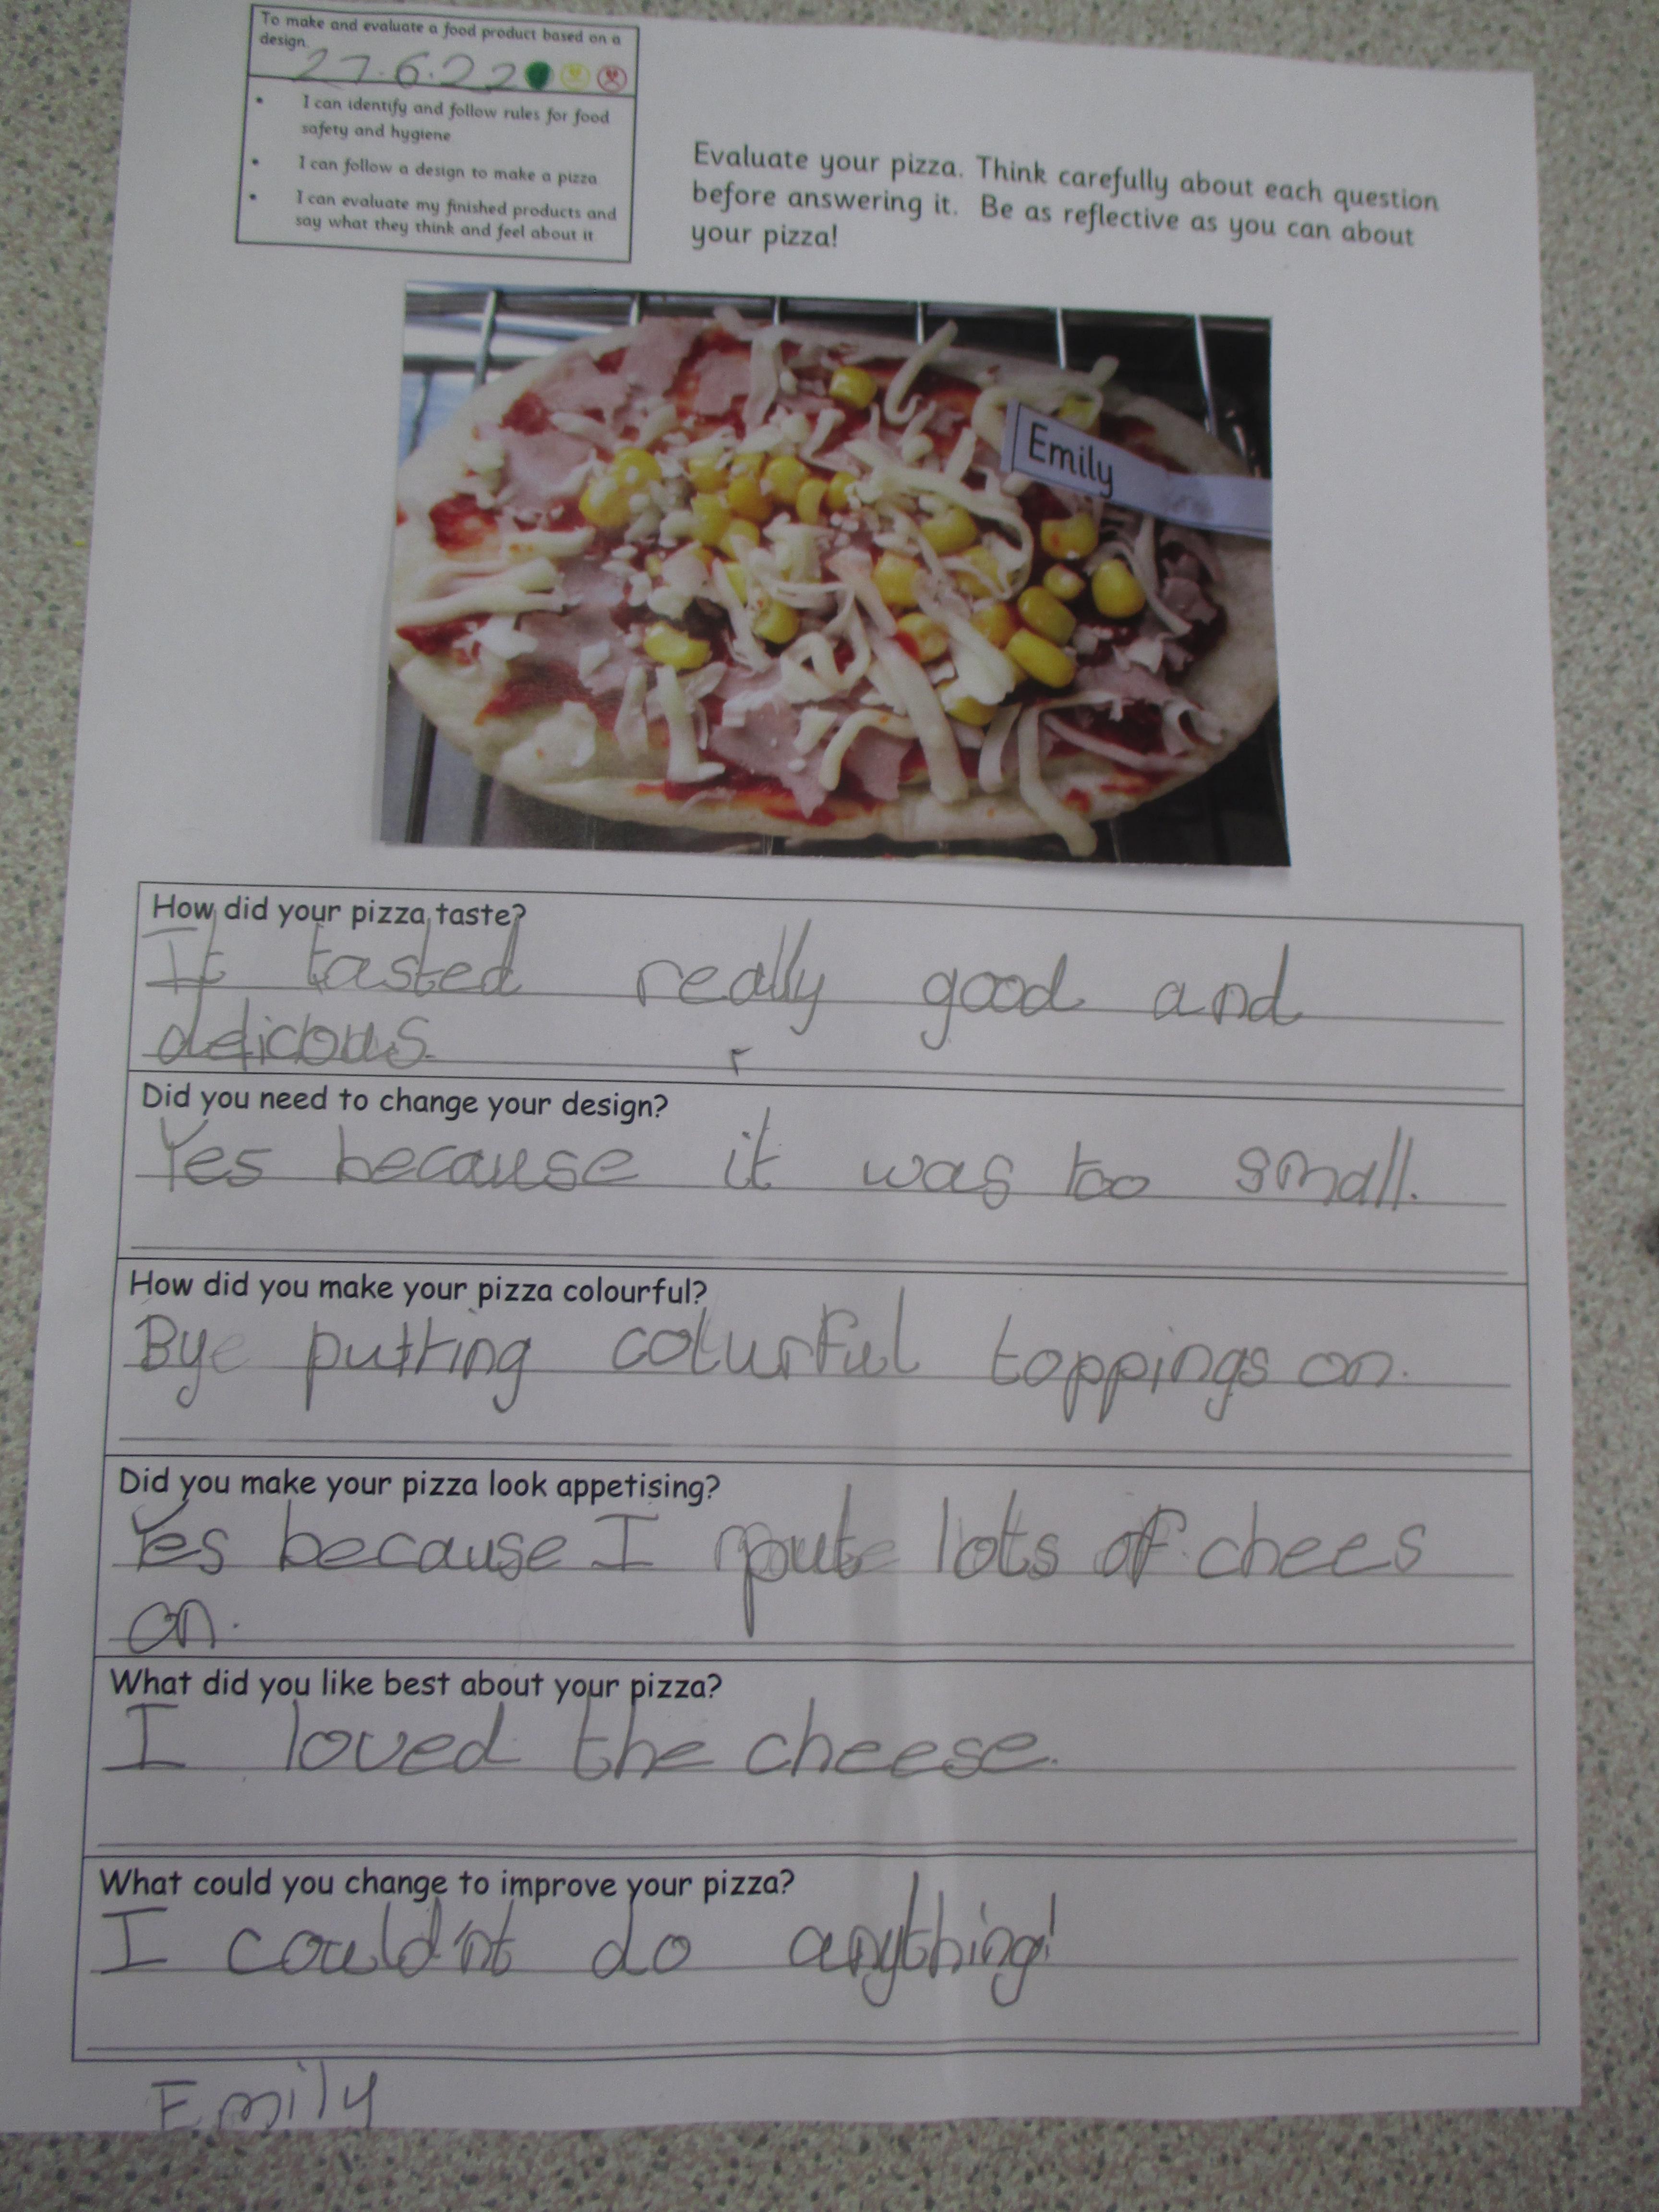 To make and evaluate a food product based on a
design.
27.6.22
• I can identify and follow rules for food
safety and hygiene
• I can follow a design to make a pizza
• I can evaluate my finished products and
say what they think and feel about it
Evaluate your pizza. Think carefully about each question
before answering it. Be as reflective as you can about
your pizza!
Emily
How did your pizza taste?
It tasted really good and
delicious.
Did you need to change your design?
Yes because it was too small.
How did you make your pizza colourful?
Bye putting colurful toppings on.
Did you make your pizza look appetising?
Yes because I put lots of chees
on.
What did you like best about your pizza?
I loved the cheese.
What could you change to improve your pizza?
I could'nt do anything!
Emily